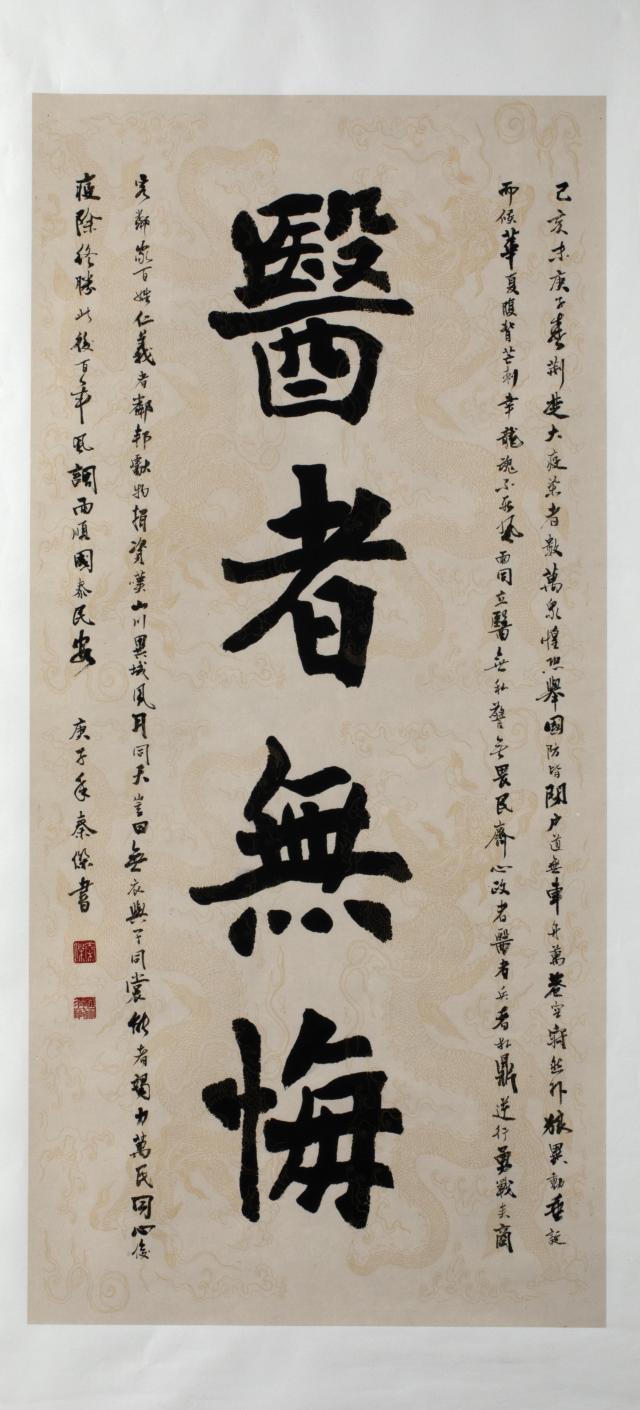 己亥末庚子春荆楚大疫染者数萬眾惶恐舉國防皆閉户道無車舟萬巷空寂然外狼異動垂涎
而候華夏腹背芒刺幸龍魂不死風雨同立醫無私警無畏民齊心政者醫者兵者扛鼎逆行勇戰矣商
醫者無悔
客鄰家百姓仁義者鄰邦獻物捐資嘆山川異域風月同天豈曰無衣與子同裳能者竭力萬民同心後
疫除終勝此後百年風調雨順國泰民安
庚子年秦傑書